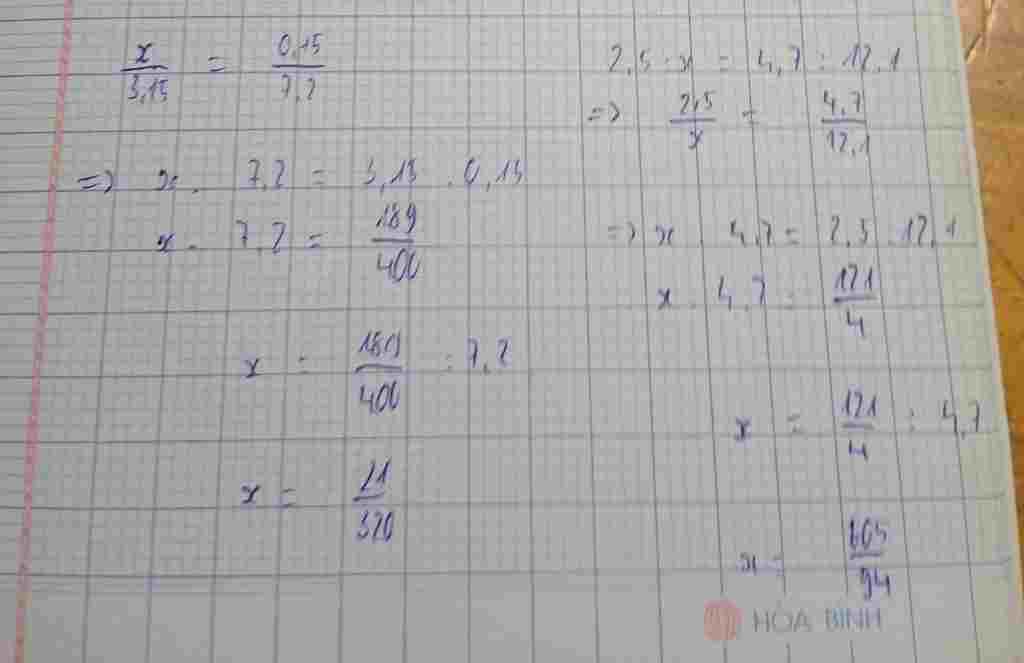 x/3,15 = 0,15/7,2
=> x . 7,2 = 3,15 . 0,15
x . 7,2 = 189/400
x = 189/400 : 7,2
x = 21/320
2,5 : x = 4,7 : 12,1
=> 2,5/x = 4,7/12,1
=> x . 4,7 = 2,5 . 12,1
x . 4,7 = 121/4
x = 121/4 : 4,7
x = 605/94
HOA BINH